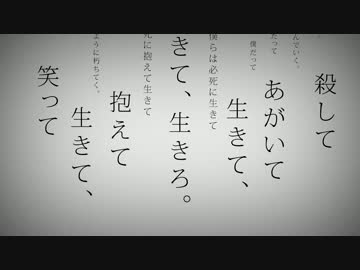 んでいく。
殺して
だって
あがいて
僕だって
生きて、
僕らは必死に生きて
きて、生きろ。
死に抱えて生きて
抱えて
ように朽ちてく。
生きて、
笑って